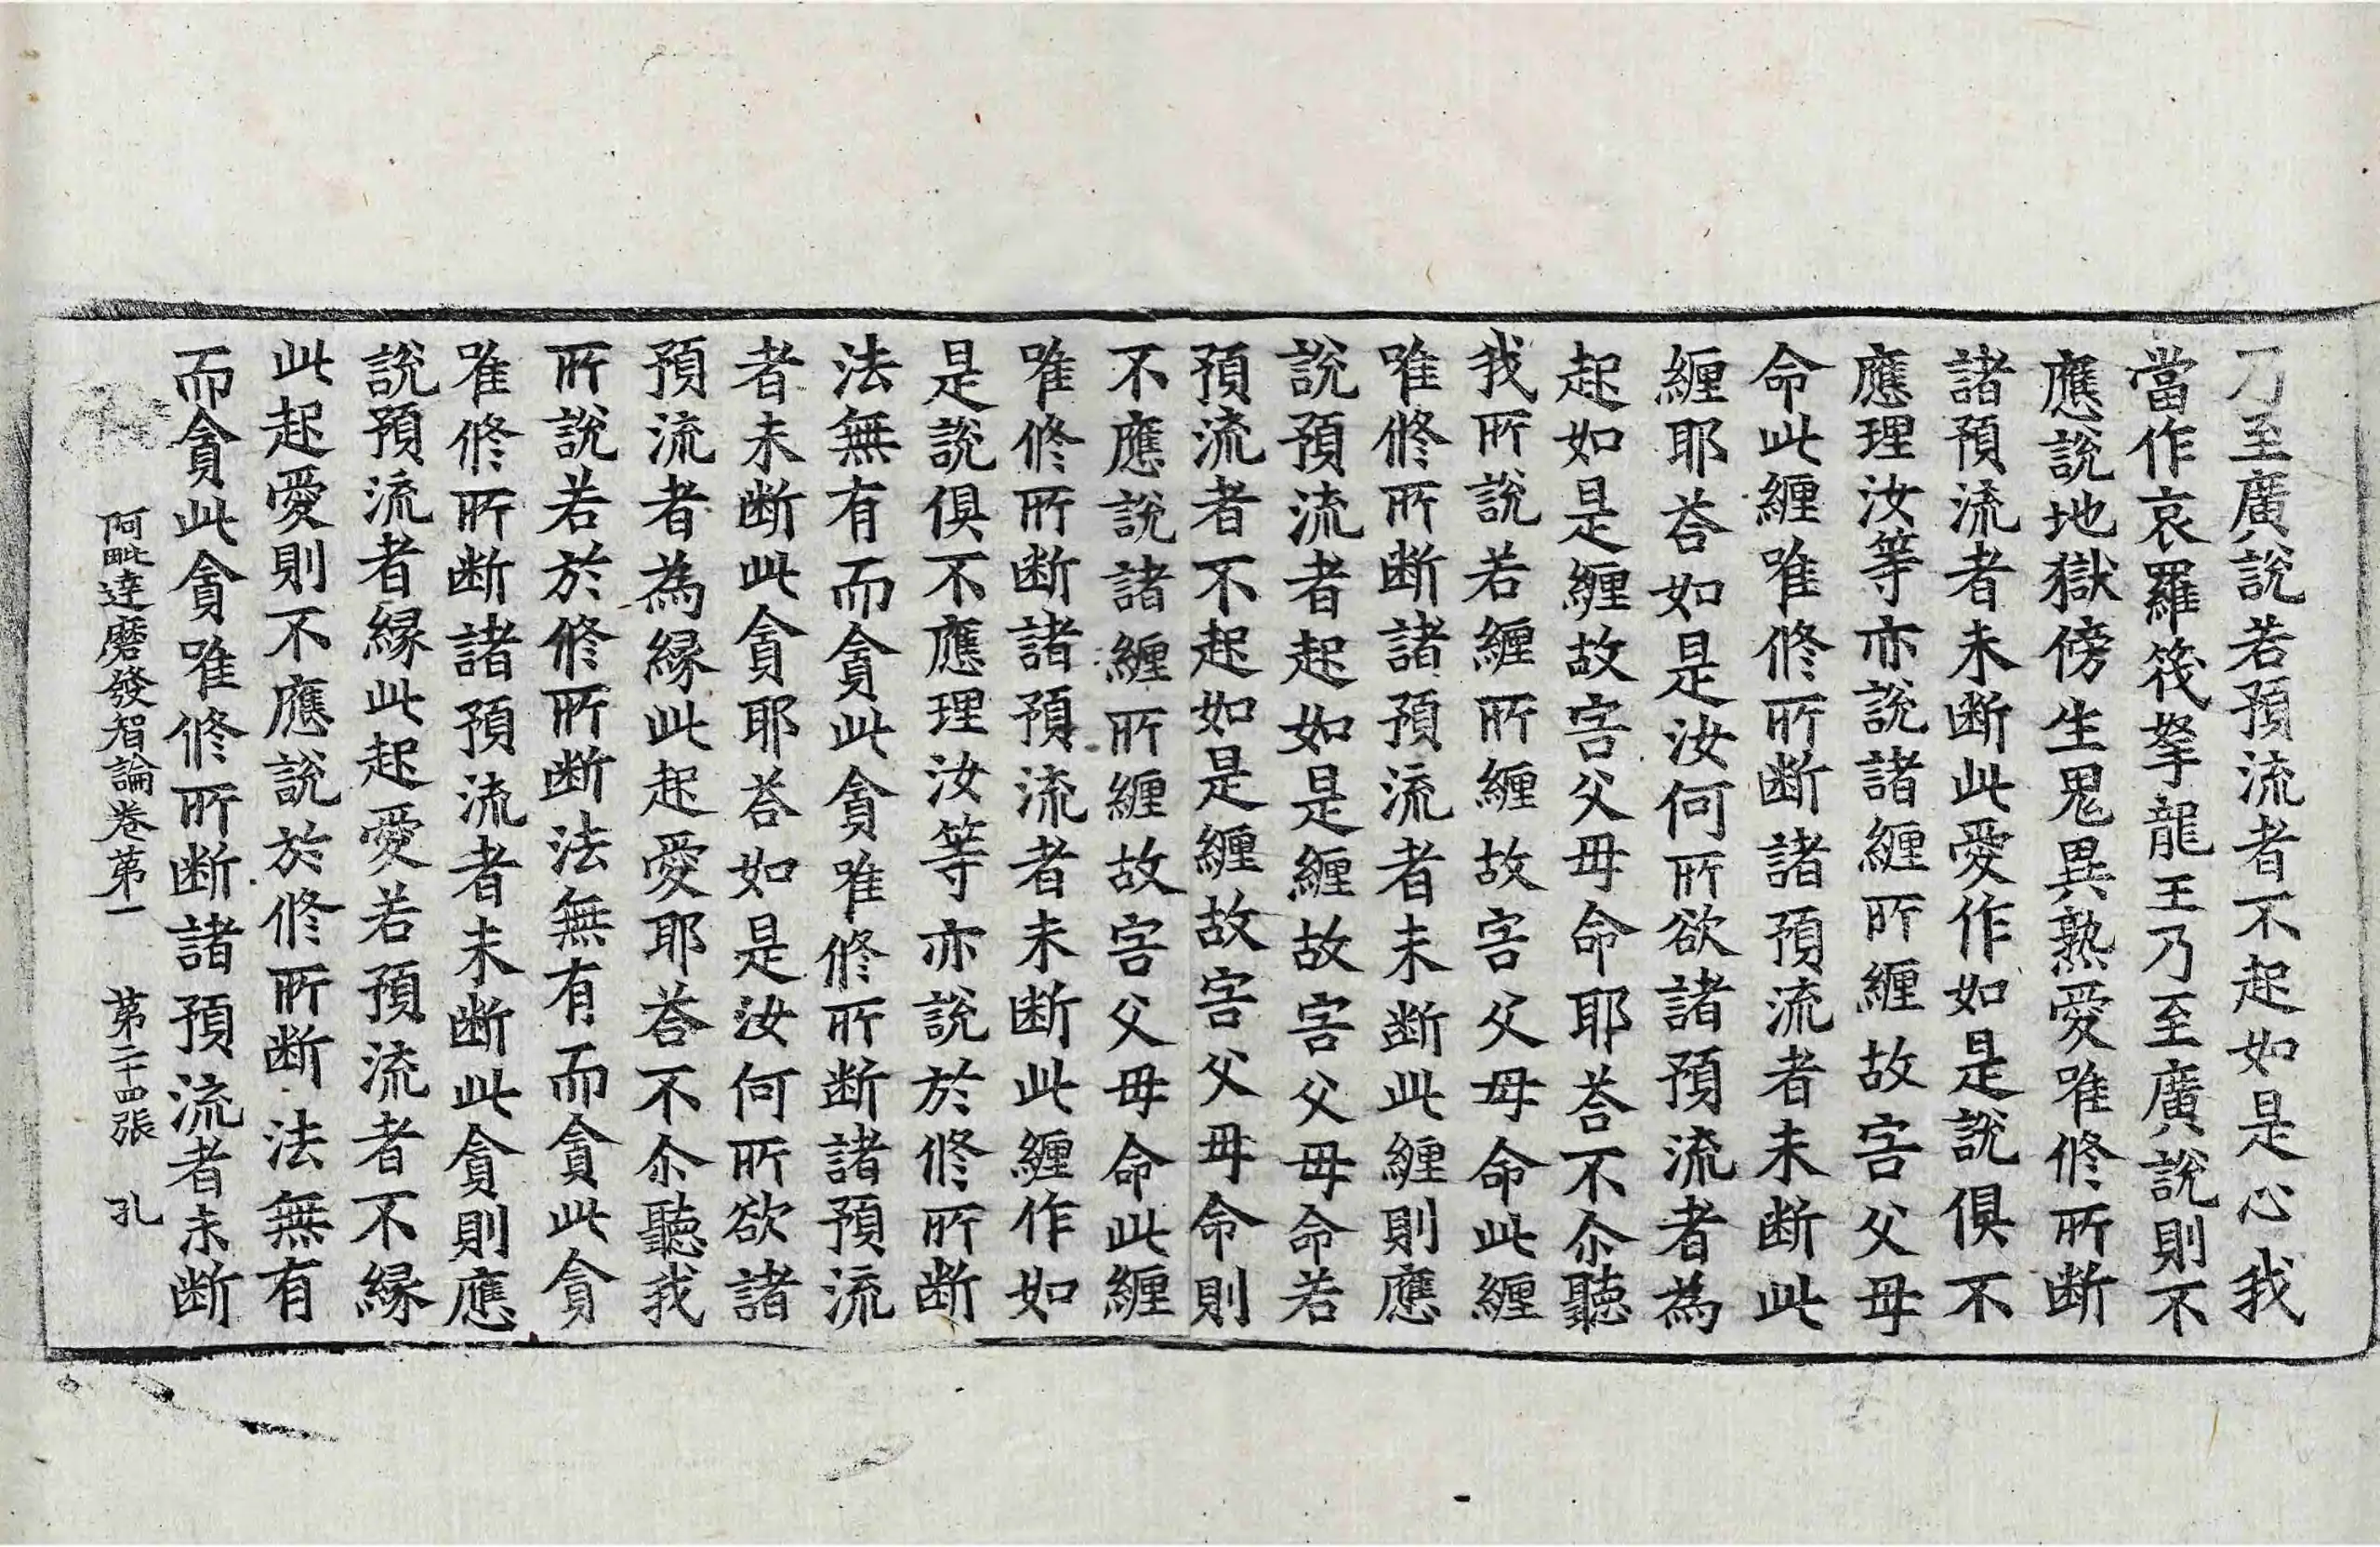 乃至廣說若預流者不起如是心我
當作哀羅筏拏龍王乃至廣說則不
應說地獄傍生鬼異熟愛唯修所断
諸預流者未断此愛作如是說俱不
應理汝等亦說諸纏所纏故害父母
命此纏唯修所断諸預流者未断此
纏耶荅如是汝何所欲諸預流者為
起如是纏故害父母命耶荅不尒聽
我所說若纏所纏故害父母命此纏
唯修所断諸預流者未断此纏則應
說預流者起如是纏故害父母命若
預流者不起如是纏故害父母命則
不應說諸纏所纏故害父母命此纏
唯修所断諸預流者未断此纏作如
是說俱不應理汝等亦說於修所断
法無有而貪此貪唯修所断諸預流
者未断此貪耶荅如是汝何所欲諸
預流者為緣此起愛耶荅不尒聽我
所說若於修所断法無有而貪此貪
唯修所断諸預流者未断此貪則應
說預流者緣此起愛若預流者不緣
此起愛則不應說於修所断法無有
而貪此貪唯修所断諸預流者未断
阿毗達磨發智論卷第一 第二十四張 孔